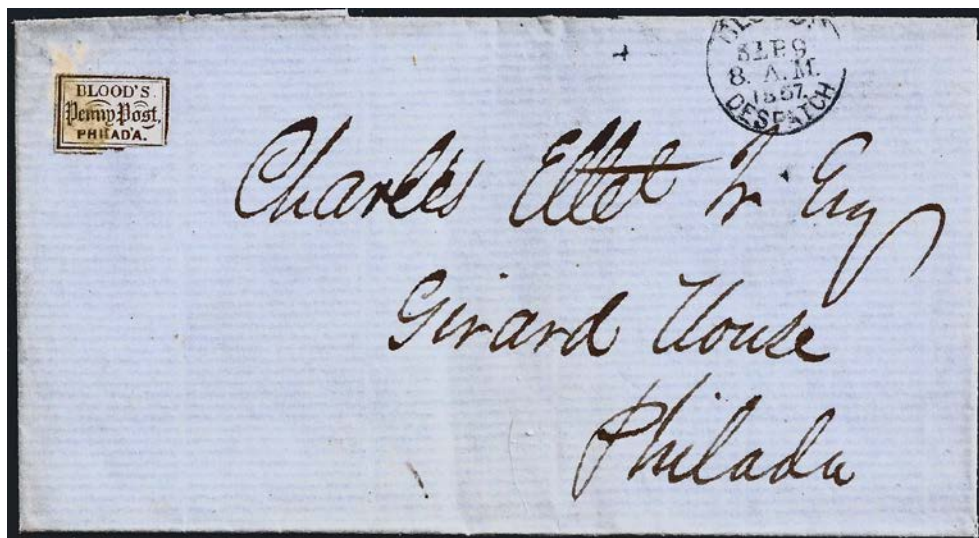 BLOOD'S
Penny Post,
PHILAD'A.
SEP 9
8. A.M.
1857.
DESPATCH
Charles Ellet Jr Esq
Girard House
Philada